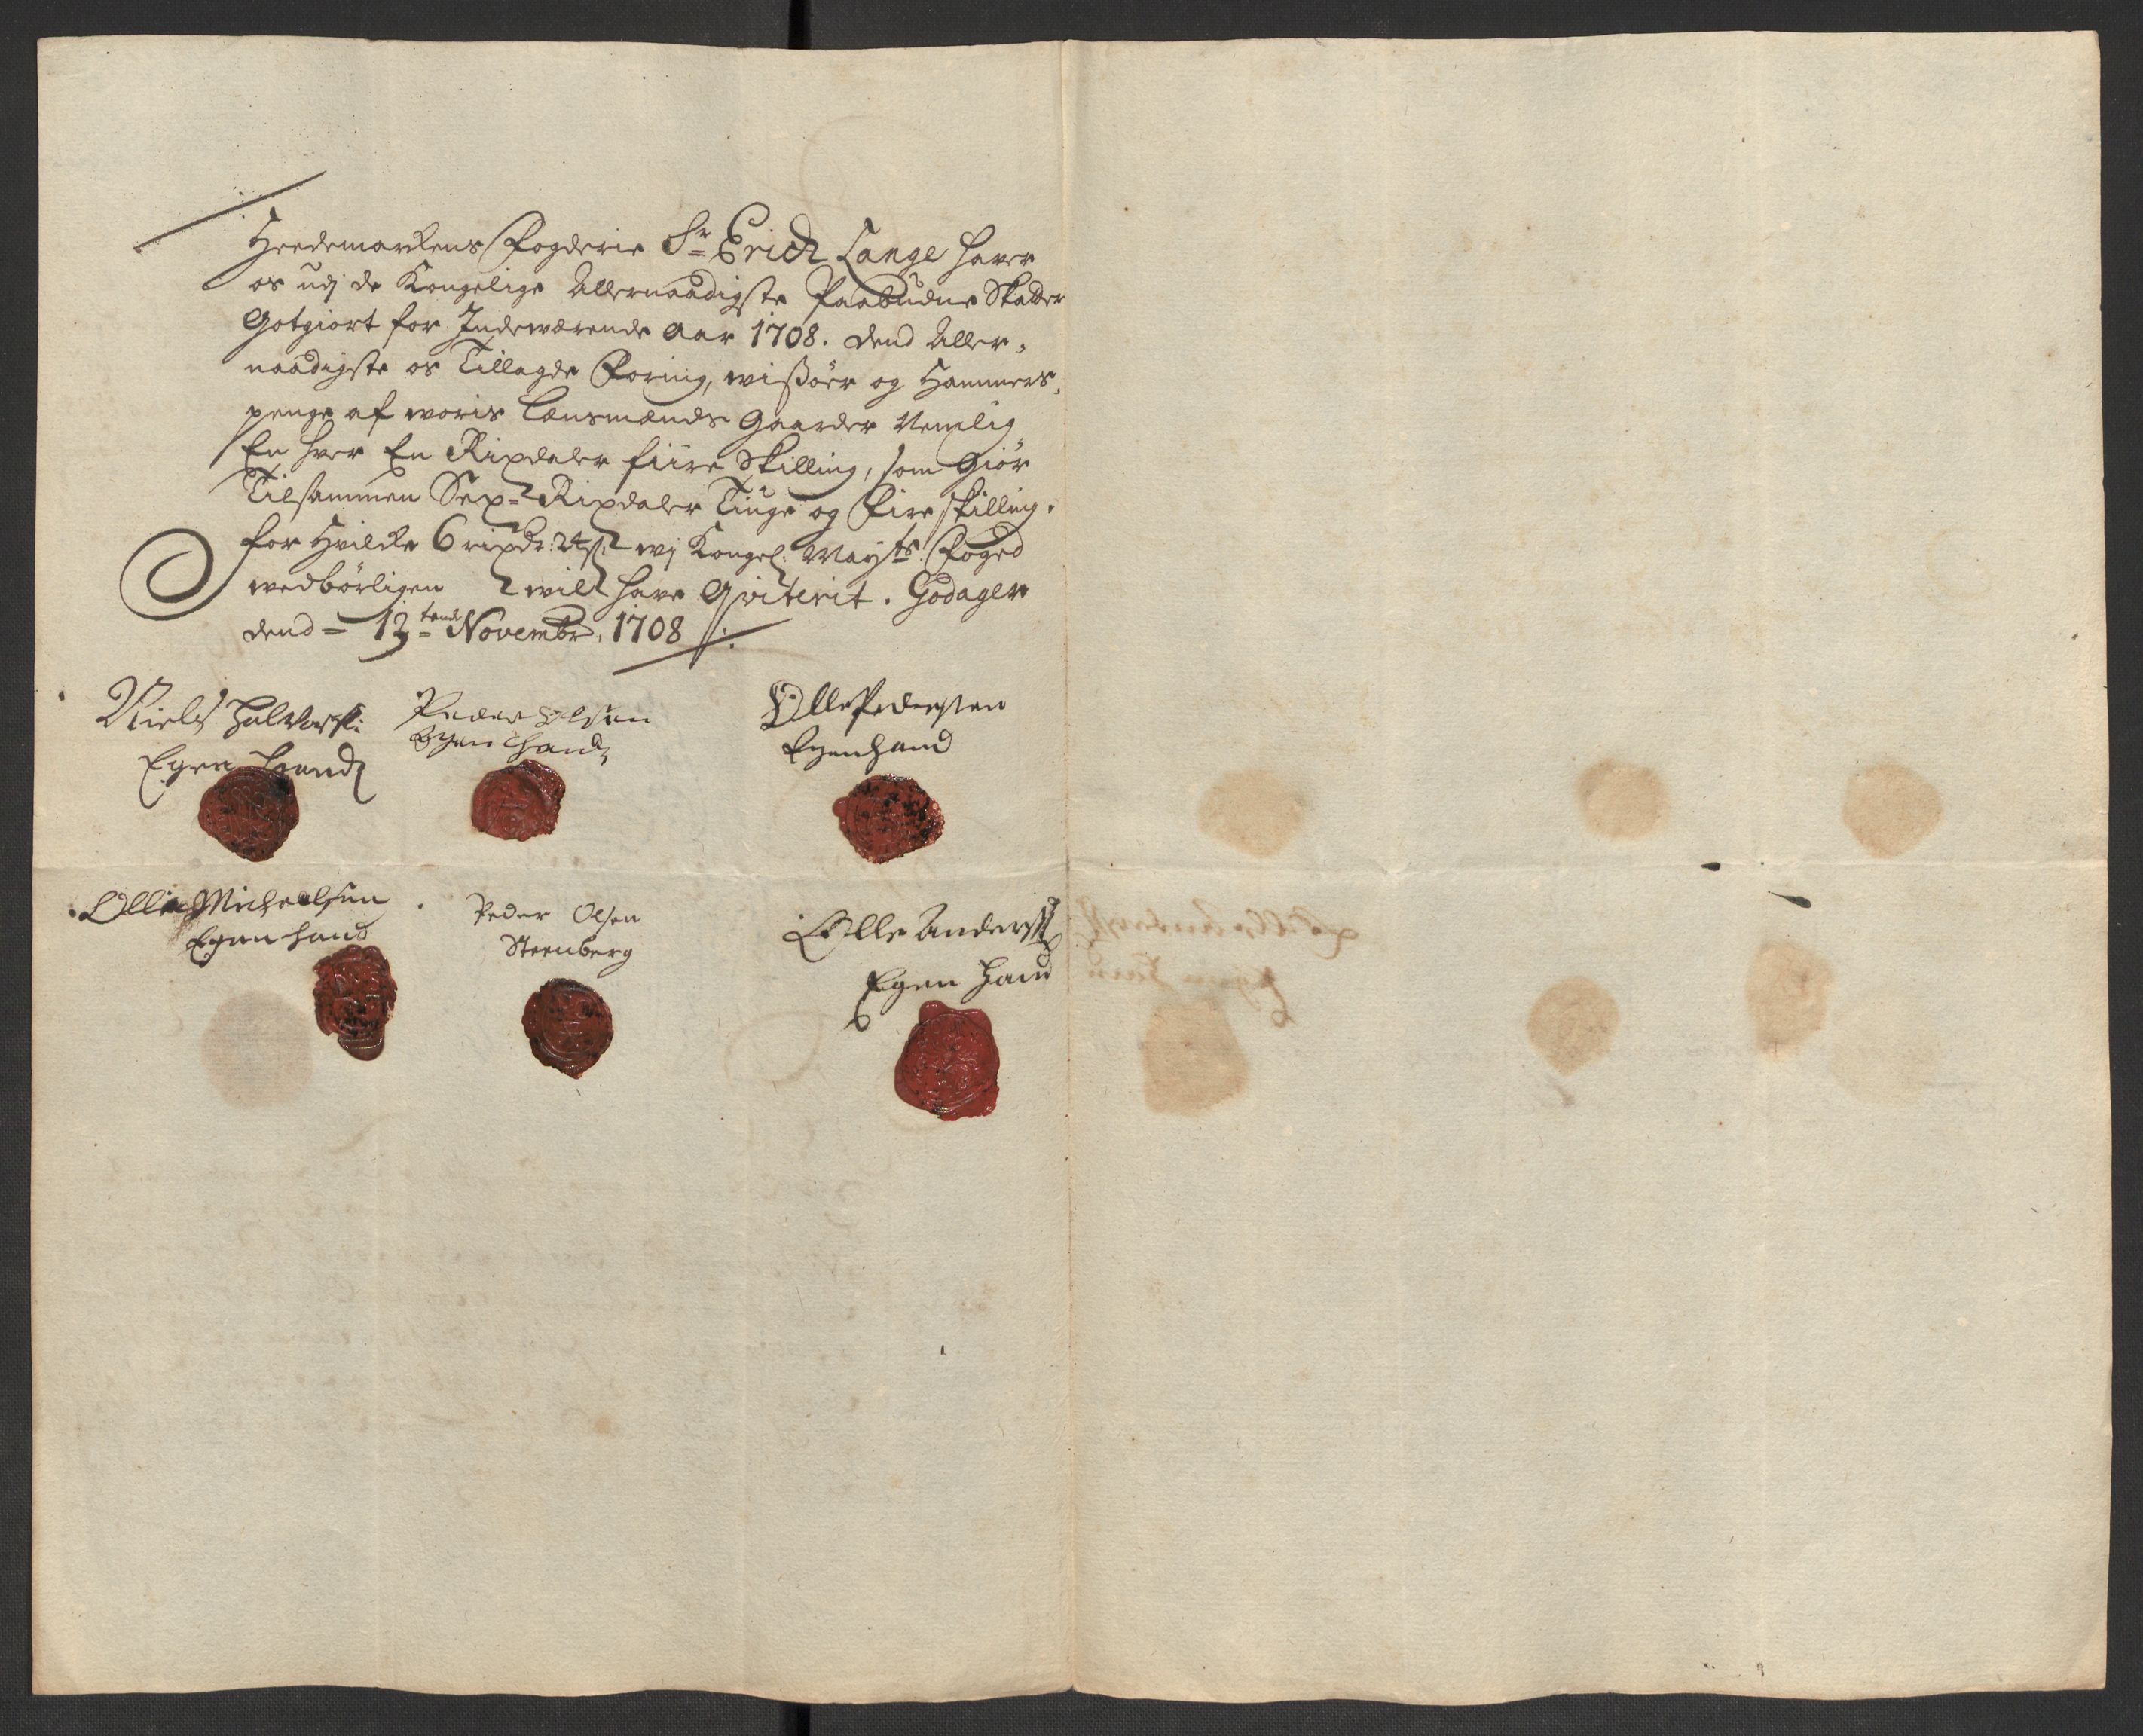 Heedemarkens Fogderie Sr Erich Lange haver
os udj de Kongelige Allernaadigste Paabudne Skatter
Gotgiort for Indeværende Aar 1708. dend Aller,
naadigste os Tillagde Foring, wisøer og Hammers,
penge af woris Lensmænds Gaarder Nemlig
En hver En Rixdaler fiire Skilling, som Giør
Tilsammen Sex Rixdaler Tiuge og Fire skilling.
for Hvilcke 6 rixdr: 24 s wj Kongel: Mayts Foged
wedbørligen will have Qviterit. Godager
dend 13tend Novembr, 1708
Niels Halvorss:
Egen Haand
Peder Olsen
Egen Haand
Olle Pedersen
Egenhand
Olle Michelsen
Egen hand
Peder Olsen
Steenberg
Olle Anderss
Egen Hand